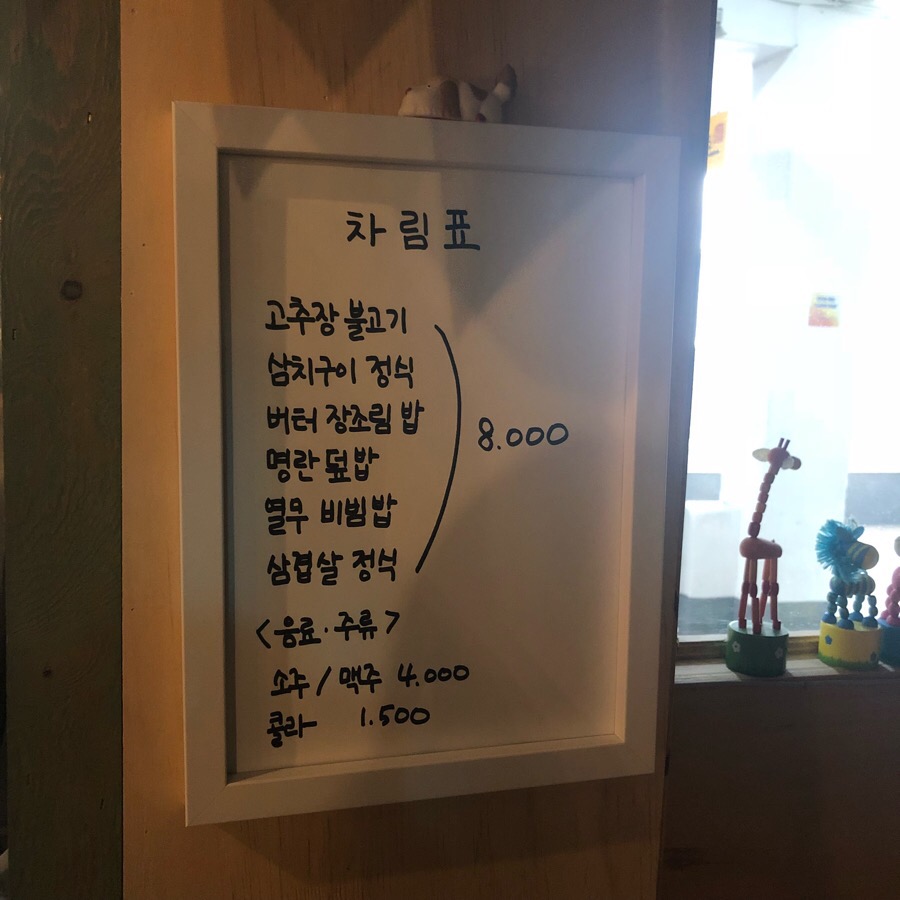 차림표
고추장 불고기
삼치구이 정식
버터 장조림 밥
명란 덮밥
열무 비빔밥
삼겹살 정식
8.000
<음료·주류>
소주 / 맥주 4.000
콜라 1.500